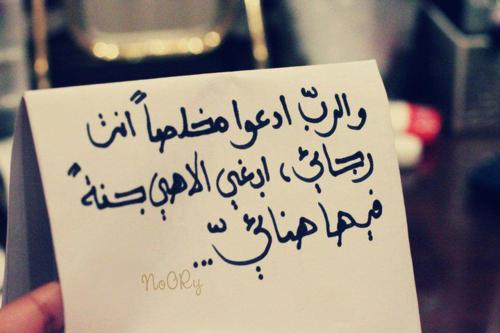 والربّ ادعوا مخلصاً انت
رجائي، ابغي الاهي جنةً
فيها هنائيّ...
NoORy